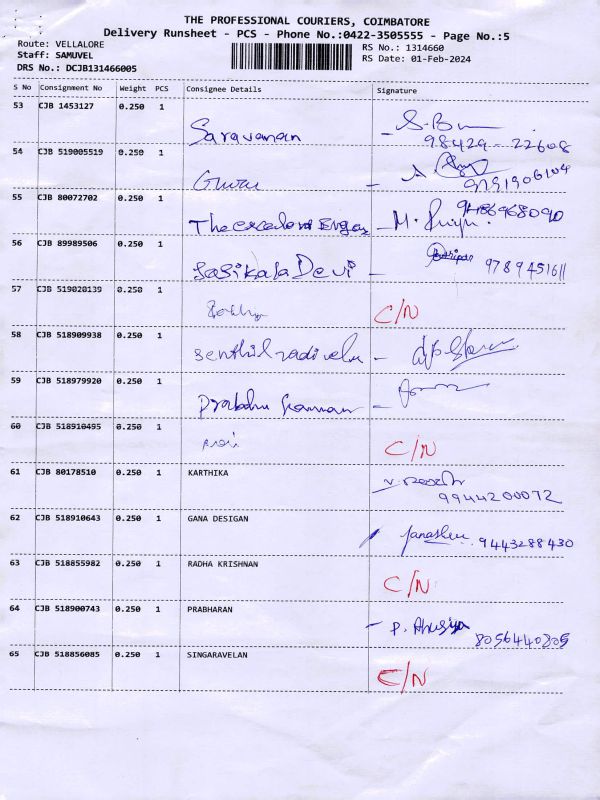 THE PROFESSIONAL COURIERS, COIMBATORE
Delivery Runsheet - PCS - Phone No.:0422-3505555 - Page No.:5
Route: VELLALORE RS No.: 1314660
Staff: SAMUVEL RS Date: 01-Feb-2024
DRS No.: DCJB131466005
S No Consignment No Weight PCS Consignee Details Signature
53 CJB 1453127 0.250 1
Saravanan
98429-22608
54 CJB 519005519 0.250 1
Guru
9791906104
55 CJB 80072702 0.250 1
56 CJB 89989506 0.250 1
Sasikala Devi 9789451611
57 CJB 519020139 0.250 1
C/N
58 CJB 518909938 0.250 1
Senthil vadivelu
59 CJB 518979920 0.250 1
Prabhu
60 CJB 518910495 0.250 1
C/N
61 CJB 80178510 0.250 1 KARTHIKA
9944200072
62 CJB 518910643 0.250 1 GANA DESIGAN
9443288430
63 CJB 518855982 0.250 1 RADHA KRISHNAN
C/N
64 CJB 518900743 0.250 1 PRABHARAN
P. Anusiya 8056440305
65 CJB 518856085 0.250 1 SINGARAVELAN
C/N